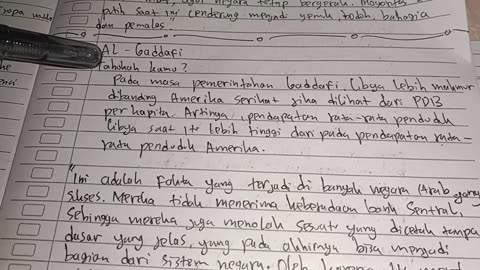 agar negara tetap bergerak. Mayoritas
patuh saat ini cenderung menjadi gemuk, bodoh, bahagia
dan pemalas.
AL-Gaddafi
Tahukah kamu?
Pada masa pemerintahan Gaddafi, Libya lebih makmur
dibanding Amerika serikat jika dilihat dari PDB
perkapita. Artinya, pendapatan rata-rata penduduk
Libya saat itu lebih tinggi dari pada pendapatan rata-
rata penduduk Amerika.
"Ini adalah fakta yang terjadi di banyak negara Arab yang
sukses. Mereka tidak menerima keberadaan bank Sentral,
sehingga mereka juga menolak sesuatu yang dicetak tanpa
dasar yang jelas, yang pada akhirnya bisa menjadi
bagian dari sistem negara. Oleh karena